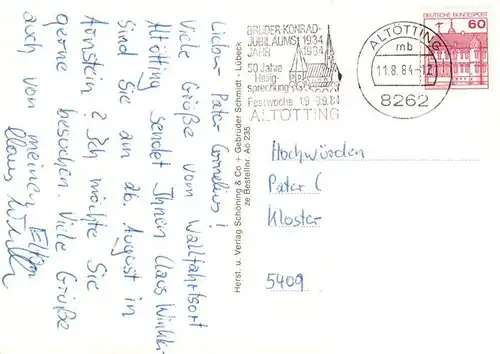 Lieber Pater Cornelius!
Viele Grüße vom Wallfahrtsort
Altötting sendet Ihnen Claus
Sind Sie am 26. August in
Arnstein? Ich möchte Sie
gerne besuchen. Viele Grüße
auch von meinen Eltern
Claus
Herst. u. Verlag Schöning & Co + Gebrüder Schmidt - Lübeck
ze Bestellnr. Aö 235
BRUDER-KONRAD-
JUBILÄUMS 1934
JAHR 1984
50 Jahre
Heilig-
sprechung
Festwoche 1.9.-9.9.84
ALTÖTTING
ALTÖTTING
mb
11.8.84-12
8262
DEUTSCHE BUNDESPOST
60
Hochwürden
Pater C
Kloster
5409